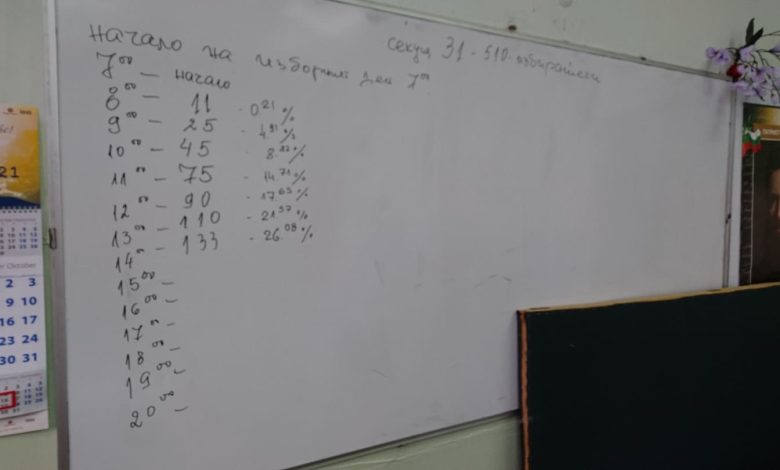 Начало на изборния ден 7⁰⁰
секция 31 - 510 избиратели
7⁰⁰ — начало
8⁰⁰ — 11 - 0.21 %
9⁰⁰ — 25 - 4.91 %
10⁰⁰ — 45 - 8.82 %
11⁰⁰ — 75 - 14.71 %
12⁰⁰ — 90 - 17.65 %
13⁰⁰ — 110 - 21.57 %
14⁰⁰ — 133 - 26.08 %
15⁰⁰ —
16⁰⁰ —
17⁰⁰ —
18⁰⁰ —
19⁰⁰ —
20⁰⁰ —
21
October
2 3
9 10
16 17
23 24
30 31